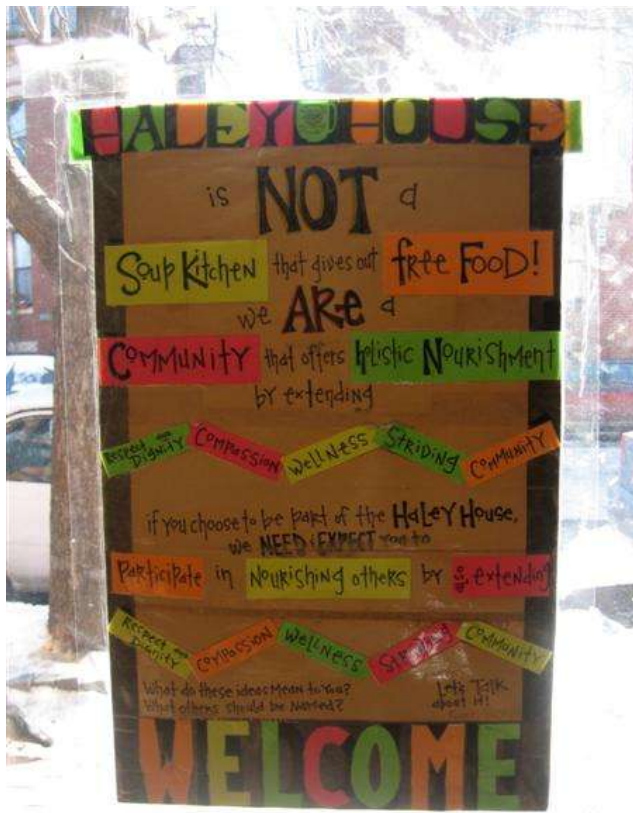 HALEY HOUSE
is NOT a
Soup Kitchen that gives out free FOOD!
we ARE a
Community that offers holistic Nourishment
by extending
Respect and Dignity Compassion Wellness Striding Community
if you choose to be part of the Haley House,
we NEED & EXPECT you to
Participate in Nourishing others by extending
Respect and Dignity Compassion Wellness Striding Community
What do these ideas Mean to You?
What others should be Named?
Let's Talk
about it!
WELCOME